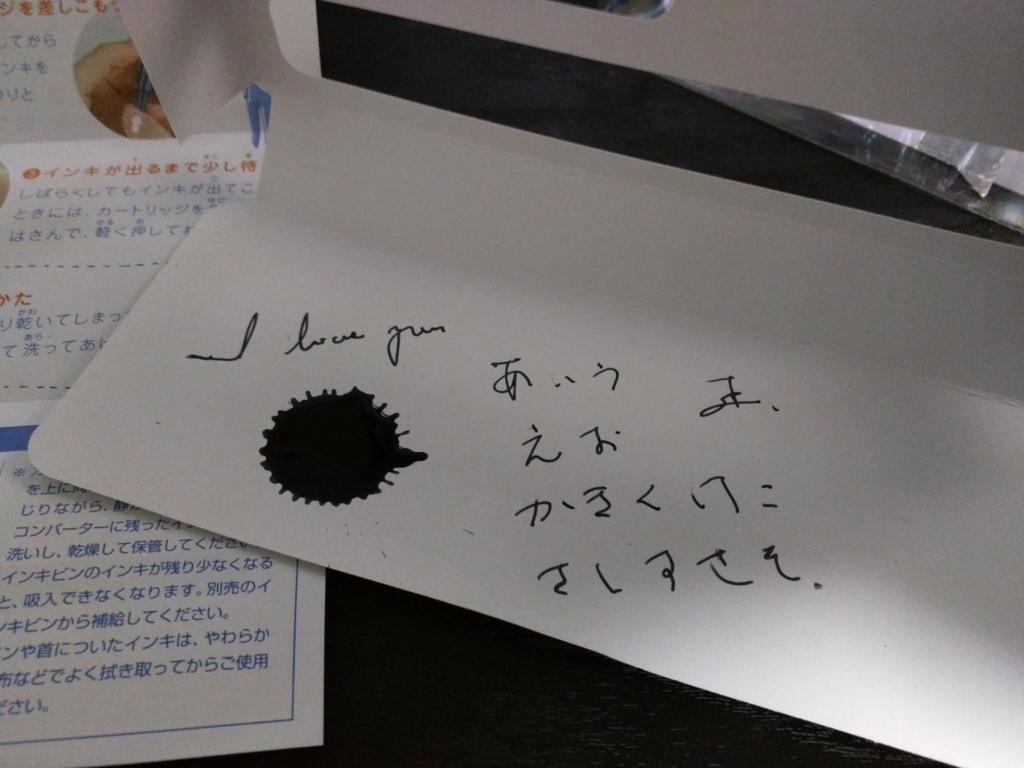 ジを差しこもう
してから
ンキを
かりと
❸インキが出るまで少し待
しばらくしてもインキが出てこ
ときには、カートリッジを
はさんで、軽く押してれ
かた
り乾いてしまっ
て洗ってあげ
を上に向
じりながら、静
コンバーターに残ったイン
洗いし、乾燥して保管してください
インキビンのインキが残り少なくなる
と、吸入できなくなります。別売のイ
ンキビンから補給してください。
ンや首についたインキは、やわらか
布などでよく拭き取ってからご使用
ださい。
I love you
あいう
えお
かきくけこ
さしすせそ。